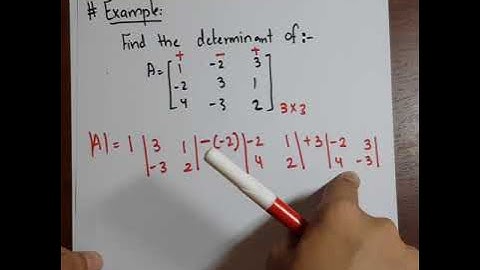 # Example:
Find the determinant of:-
+ - +
A= [ 1 -2 3
-2 3 1
4 -3 2 ] 3×3
|A| = 1 | 3 1 | -(-2) | -2 1 | +3 | -2 3 |
| -3 2 | | 4 2 | | 4 -3 |